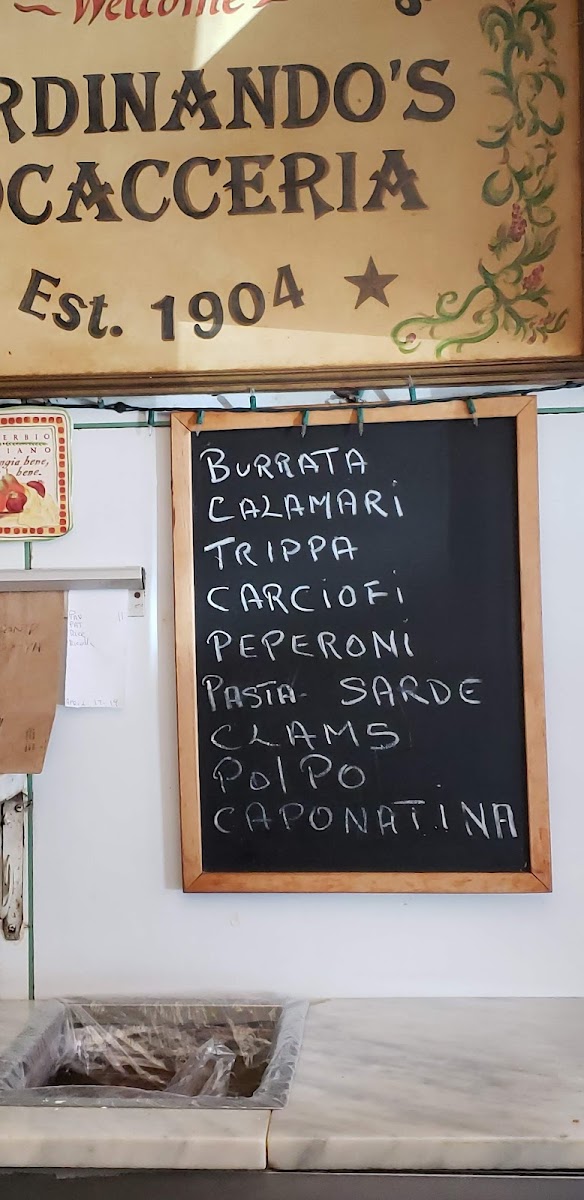 Welcome
RDINANDO'S
OCACCERIA
Est. 1904
BURRATA
CALAMARi
TRIPPA
CARCiOFi
PEPERONi
PASTA- SARDE
CLAMS
PolPO
CAPONATiNA
ERBIO
IANO
ngia bene,
bene.